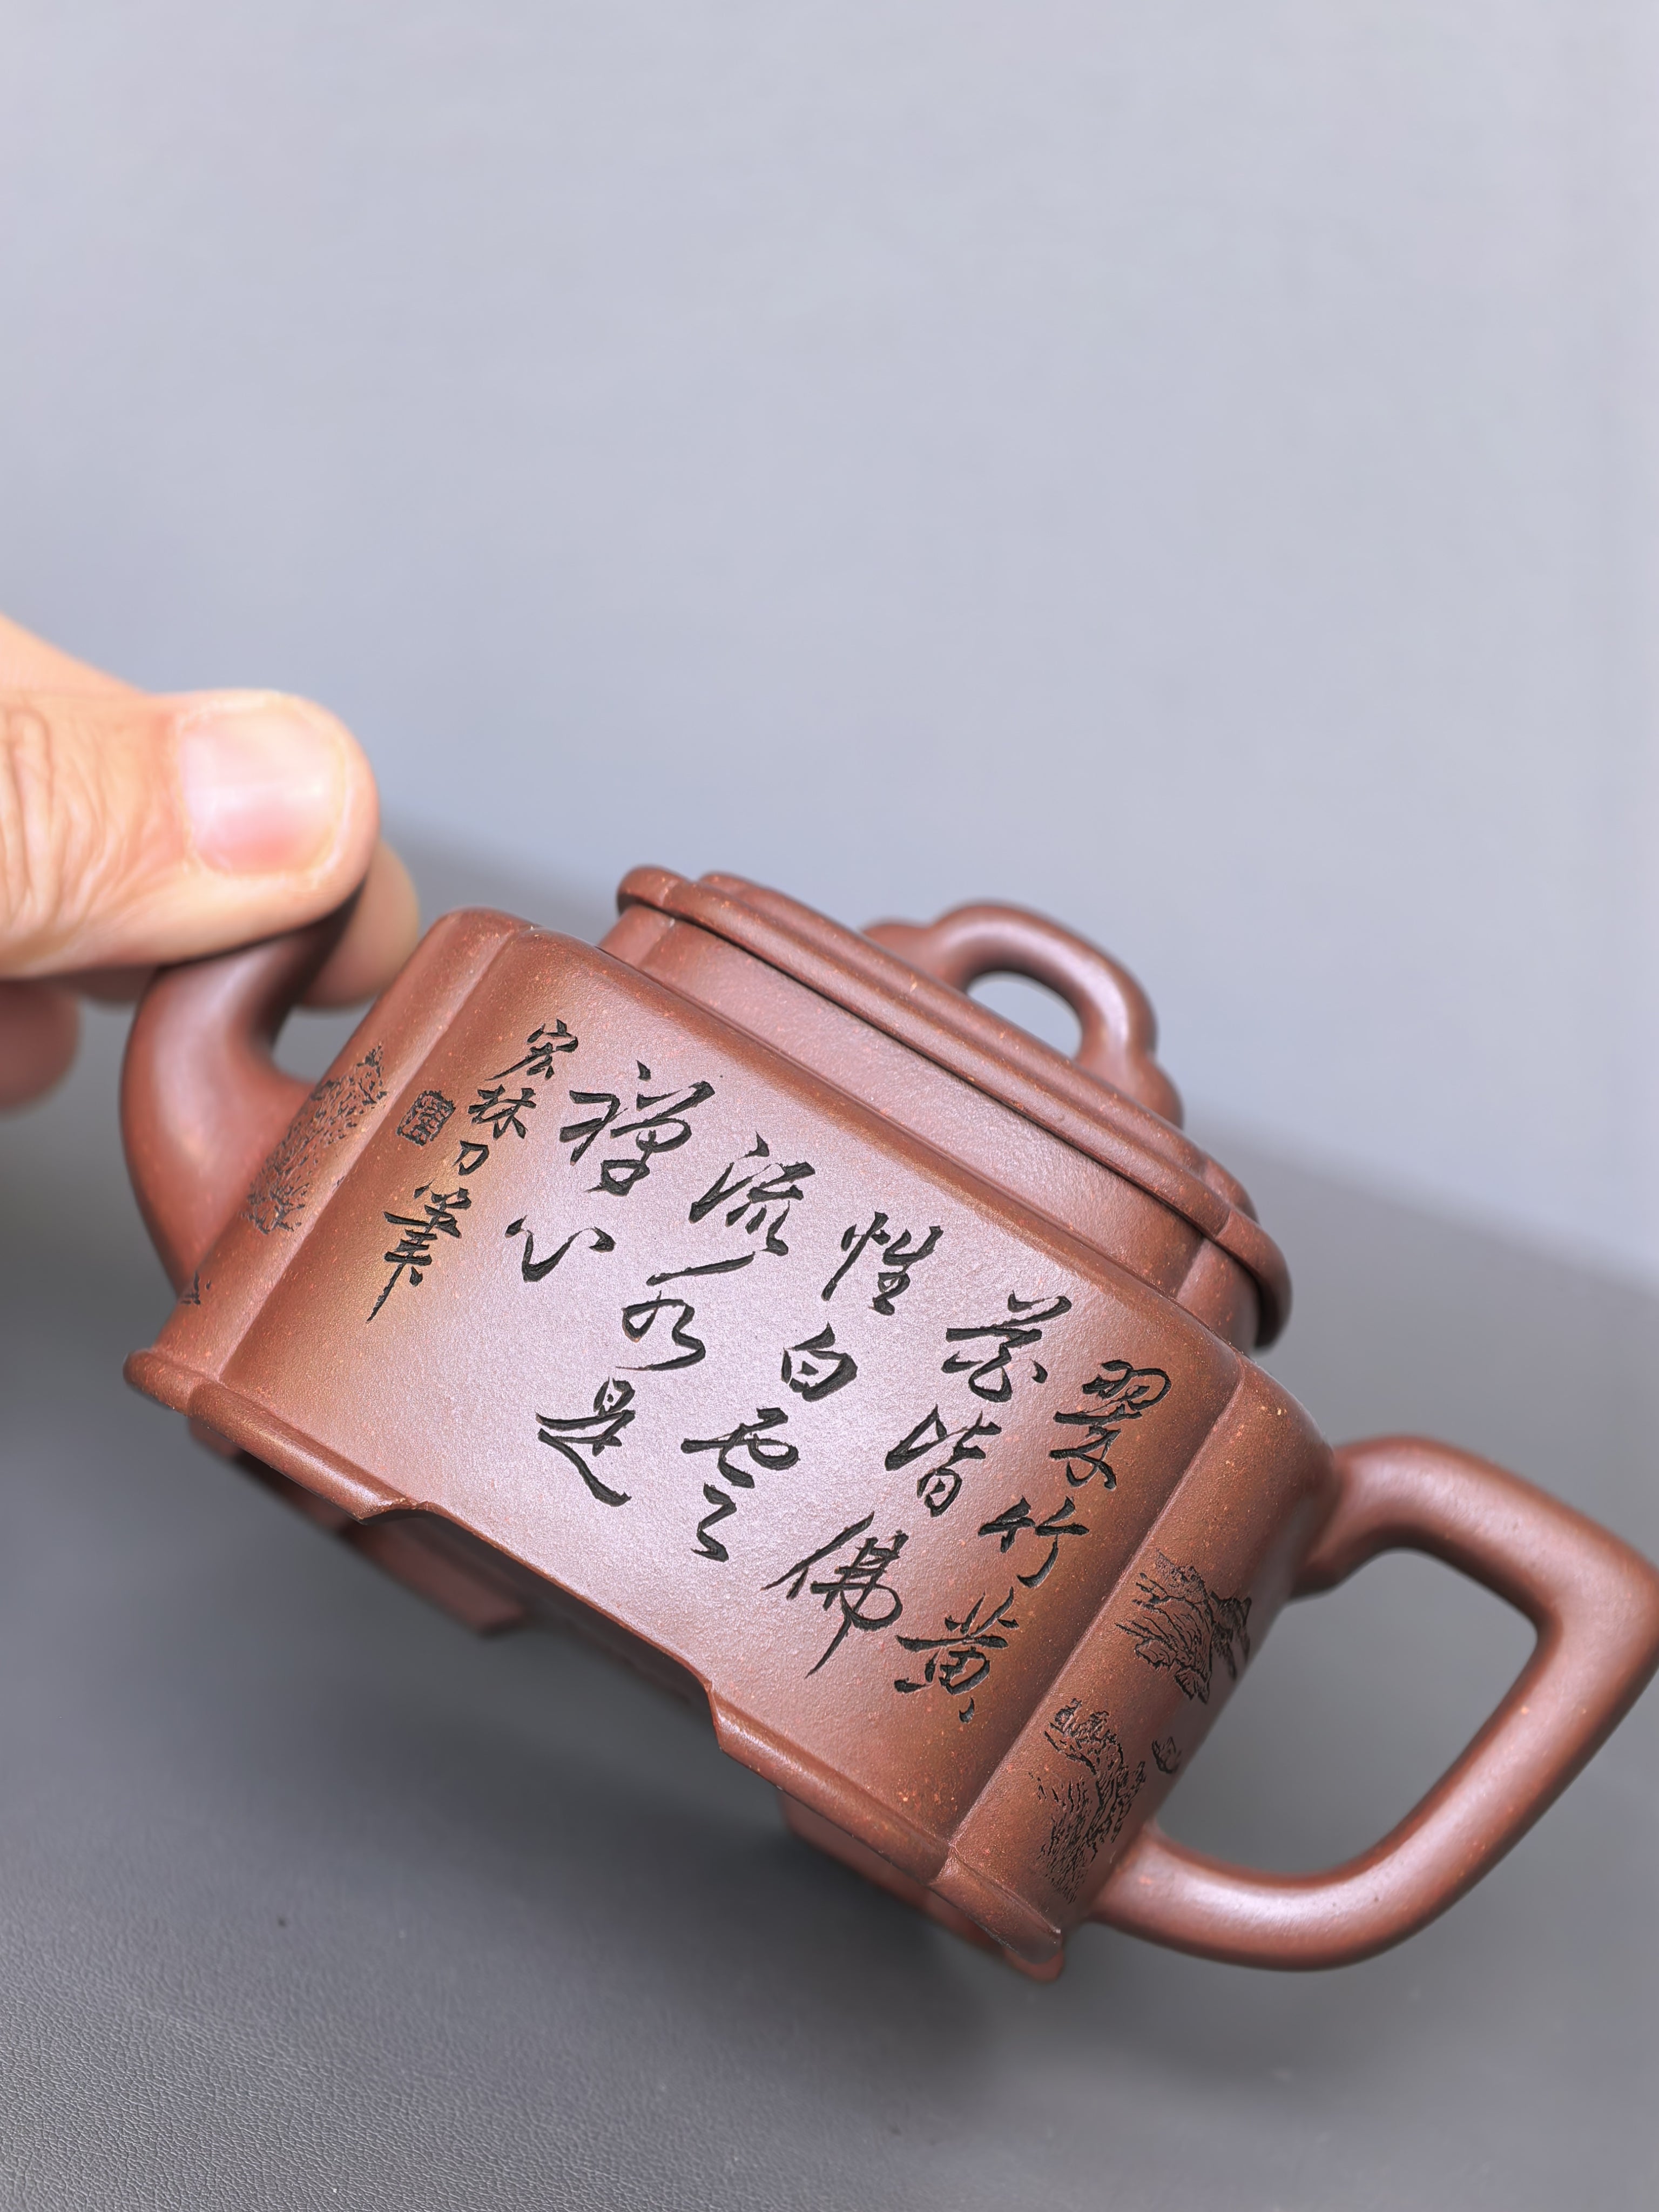 翠竹黄
花皆佛
性白雲
流水是
禅心
宏林刀筆